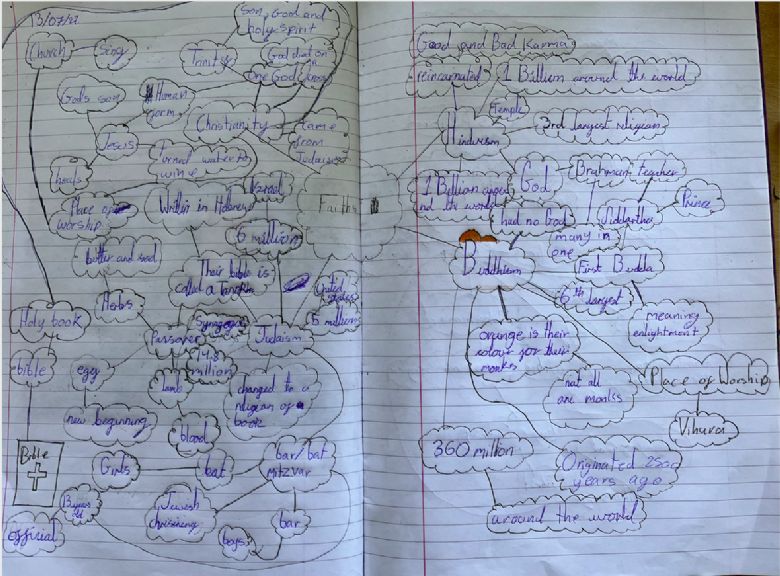 13/07/21
Church
sing
Trinity
Son, Good and
holy spirit
God died on
cross
One God
God's son
Human
form
Christianity
came
from
Judaism
Jesus
Turned water to
wine
heals
Place of
worship
Writen in Hebrew
Isreal
Faiths
6 million
bitter and
Their bible is
called a
United
states
5 million
Holy book
Herbs
Passover
Synagoga
Judaism
14.8
million
bible
egg
lamb
changed to a
religean of a
book
new beginning
blood
Bible
Girls
bat
bar/bat
Mitzvar
13 years
old
Jewish
chrisining
official
boys
bar
Good and Bad Karma
reincarnated
1 Billium around the world
Temple
Hinduism
3rd largest religean
1 Billian
nd the world
God
Brahman teacher
Prince
had no God
Siddartha
many in
one
Buddhism
First Budda
6th largest
meaning
enlightment
orange is their
colour for their
monks
not all
are monks
Place of Worship
Vihura
360 million
Originated 2500
years ago
around the world